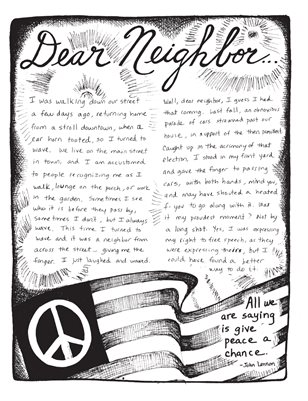 Dear Neighbor...
I was walking down our street
a few days ago, returning home
from a stroll downtown, when a
car horn tooted, so I turned to
wave. We live on the main street
in town, and I am accustomed
to people recognizing me as I
walk, lounge on the porch, or work
in the garden. Sometimes I see
who it is before they pass by,
sometimes I don't, but I always
wave. This time I turned to
wave and it was a neighbor from
across the street giving me the
finger. I just laughed and waved.
Well, dear neighbor, I guess I had
that coming. Last fall, an obnoxious
parade of cars streamed past our
house, in support of the then
Caught up in the acrimony of that
election, I stood in my front yard
and gave the finger to passing
cars, with both hands, mind you,
and may have shouted a heated
f- you to go along with it. Was
it my proudest moment? Not by
a long shot. Yes, I was expressing
my right to free speech, as they
were expressing theirs, but I
could have found a better
way to do it.
All we
are saying
is give
peace a
chance.
-John Lennon